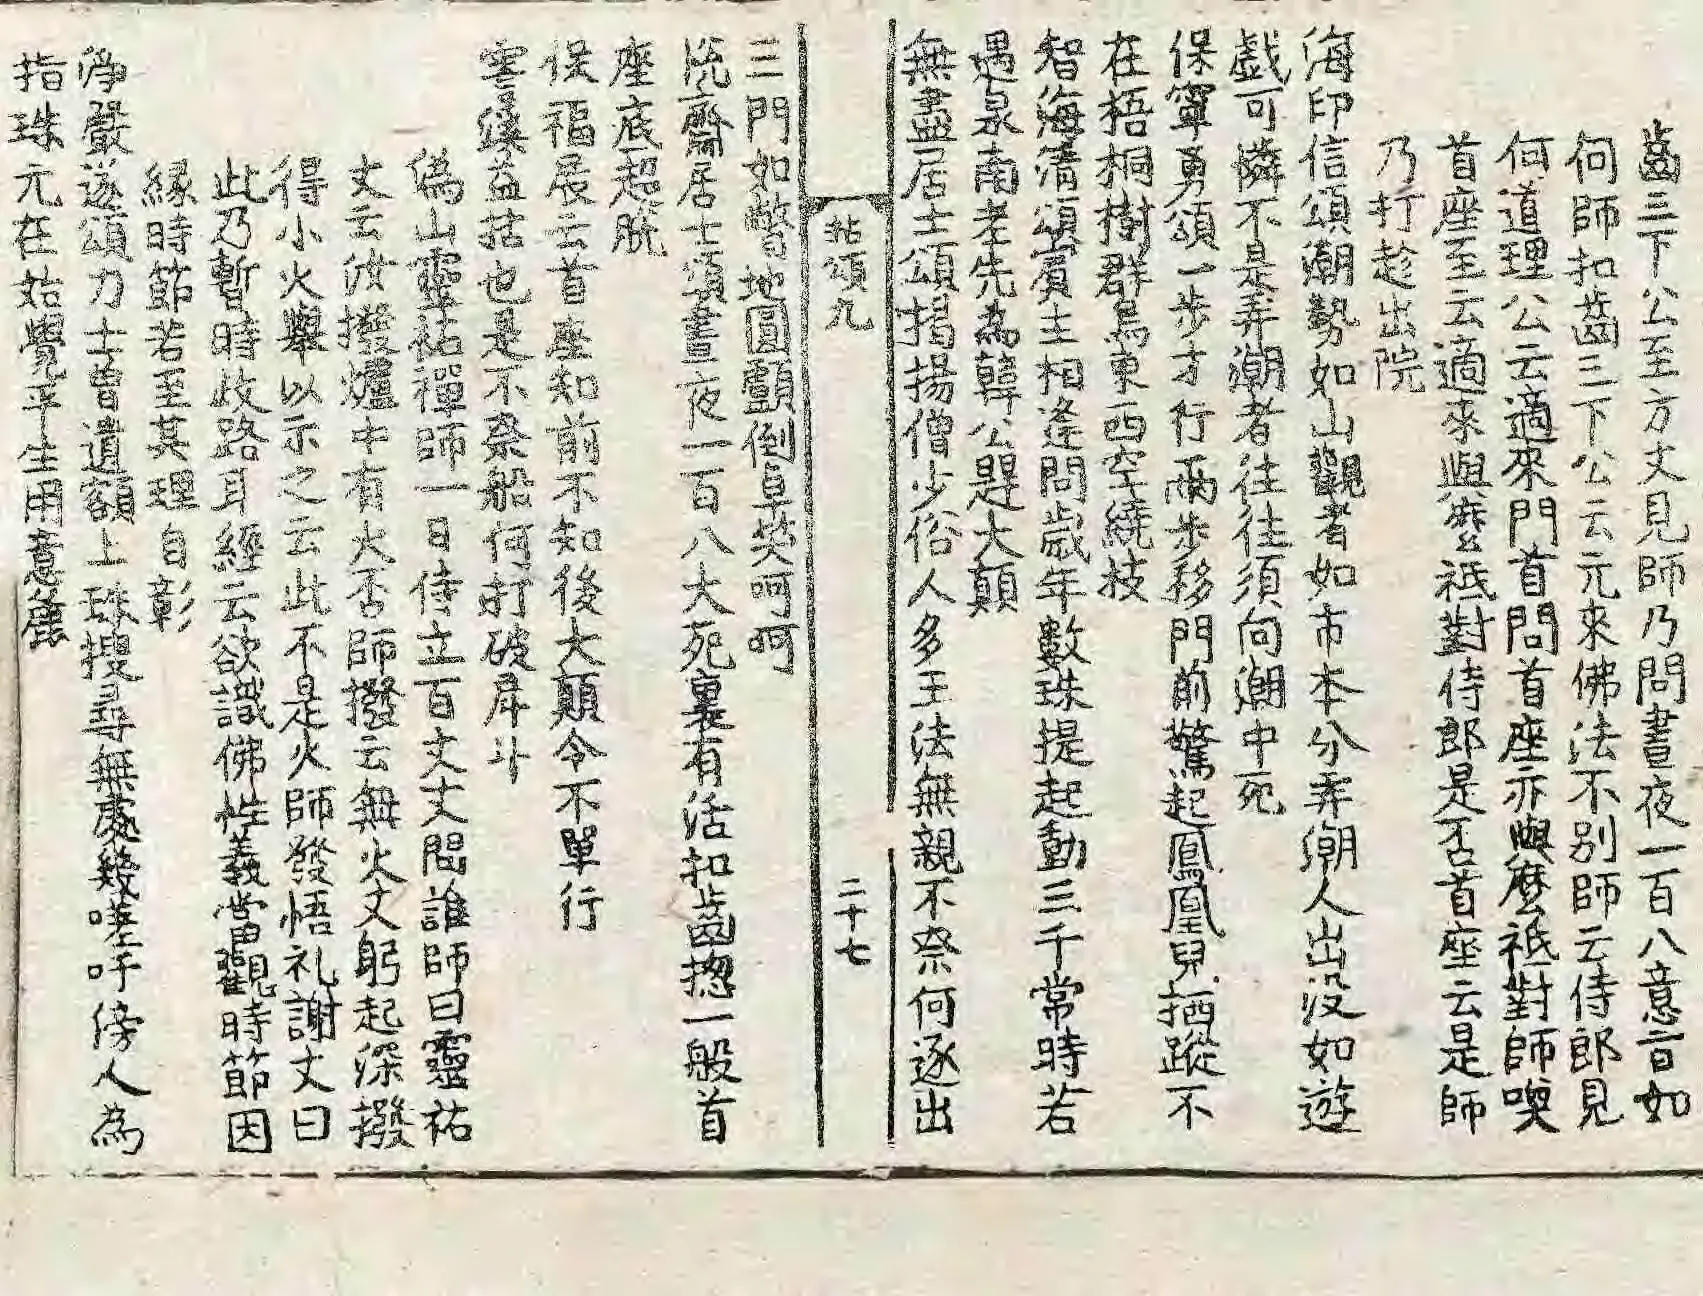 齒三下公至方丈見師乃問晝夜一百八意旨如
何師扣齒三下公云元來佛法不別師云侍郎見
何道理公云適來門首問首座亦與麽祗對師喚
首座至云適來與麽祗對侍郎是否首座云是師
乃打趁出院
海印信頌潮勢如山觀者如市本分弄潮人出没如遊
戱可憐不是弄潮者往往須向潮中死
保寧勇頌一步才行兩步移門前驚起鳳凰兒栖蹤不
在梧桐樹群鳥東西空繞枝
智海清頌賓主相逢問歲年數珠提起動三千當時若
遇泉南老先為韓公趕大顛
無盡居士頌揭揚僧少俗人多王法無親不柰何逐出
拈頌九
二十七
三門如瞥地圓顱倒卓笑呵呵
洗齋居士頌晝夜一百八大死裏有活扣齒揔一般首
座底超脫
保福展云首座知前不知後大顛令不單行
雲溪益拈也是不柰船何打破戽斗
潙山靈祐禪師一日侍立百丈丈問誰師曰靈祐
丈云汝撥爐中有火否師撥云無火丈躬起深撥
得小火擧以示之云此不是火師發悟礼謝丈曰
此乃暫時歧路耳經云欲識佛性義當觀時節因
縁時節若至其理自彰
淨嚴遂頌力士曾遺額上珠搜尋無處幾嗟吁傍人為
指珠元在始覺平生用意麁